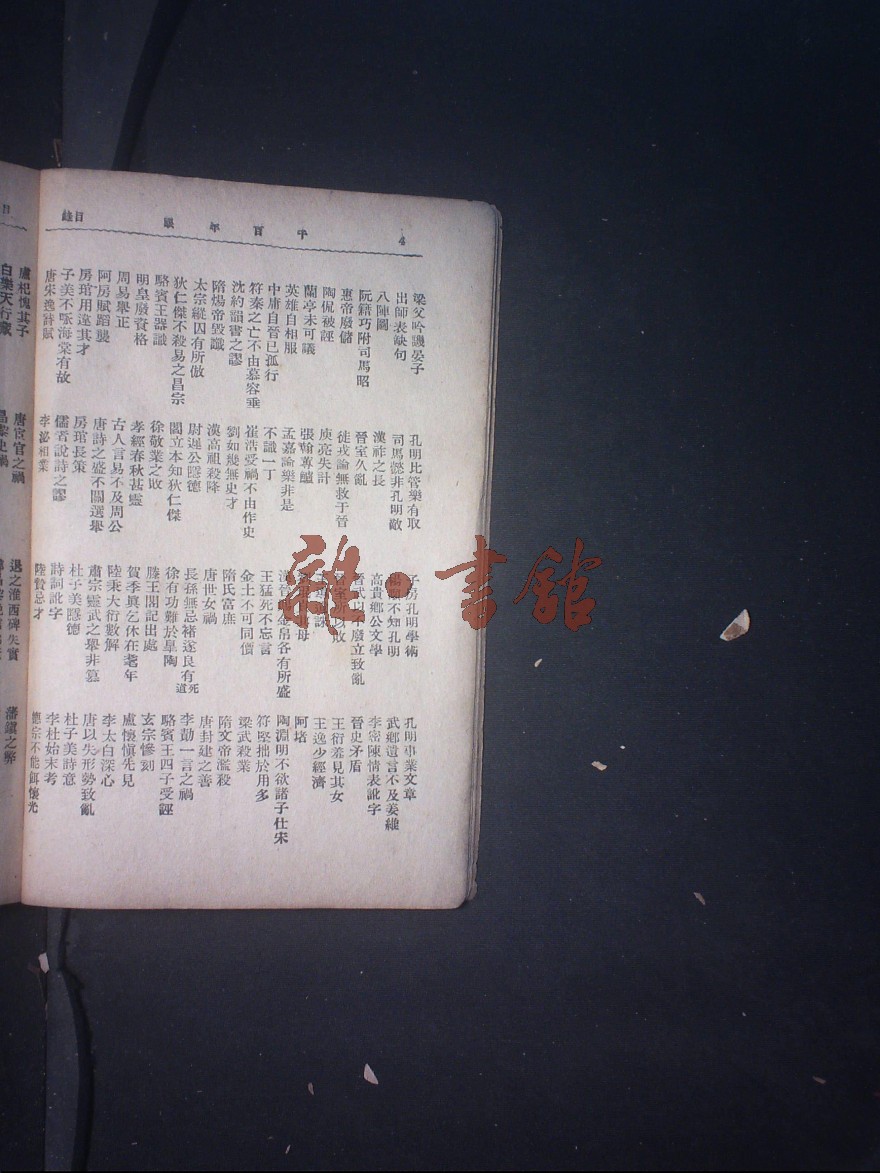 4 千百年眼 目錄
梁父吟譏晏子 孔明比管樂有取 子房孔明學術 孔明事業文章
出師表缺句 司馬懿非孔明敵 不知孔明 武鄉遺言不及姜維
八陣圖 漢祚之長 高貴鄉公文學 李密陳情表訛字
阮籍巧附司馬昭 晉室久亂 晉武以不廢立致亂 晉史矛盾
惠帝廢儲 徙戎論無救于晉 室所以敗 王衍羞見其女
陶侃被誣 庾亮失計 王逸少經濟
蘭亭未可議 張翰蓴鱸 母 阿堵
英雄自相服 孟嘉論樂非是 漢晉賜金帛各有所盛 陶淵明不欲諸子仕宋
中庸自晉已孤行 不識一丁 王猛死不忘言 符堅拙於用多
符秦之亡不由慕容垂 崔浩受禍不由作史 金土不可同價 梁武殺業
沈約韻書之謬 劉如幾無史才 隋氏富庶 隋文帝濫殺
隋煬帝毀讖 漢高祖殺降 唐世女禍 唐封建之善
太宗縱囚有所倣 尉遲公隱德 長孫無忌褚遂良有死道 李勣一言之禍
狄仁傑不殺易之昌宗 閻立本知狄仁傑 徐有功難於臯陶 駱賓王四子受誣
駱賓王器識 徐敬業之敗 滕王閣記出處 玄宗慘刻
明皇廢資格 孝經春秋甚靈 賀季真乞休在耄年 盧懷慎先見
周易舉正 古人言易不及周公 陸秉大衍數解 李太白深心
阿房賦蹈襲 唐詩之盛不關選舉 肅宗靈武之舉非篡 唐以失形勢致亂
房琯用違其才 房琯長策 杜子美隱德 杜子美詩意
子美不咏海棠有故 儒者說詩之謬 詩詞訛字 李杜始末考
唐宋逸詩賦 李泌相業 陸贄忌才 德宗不能餌懷光
目
盧杞愧其子 唐宦官之禍 退之淮西碑失實 藩鎮之弊
白樂天行藏 昌黎史禍
雜·書館